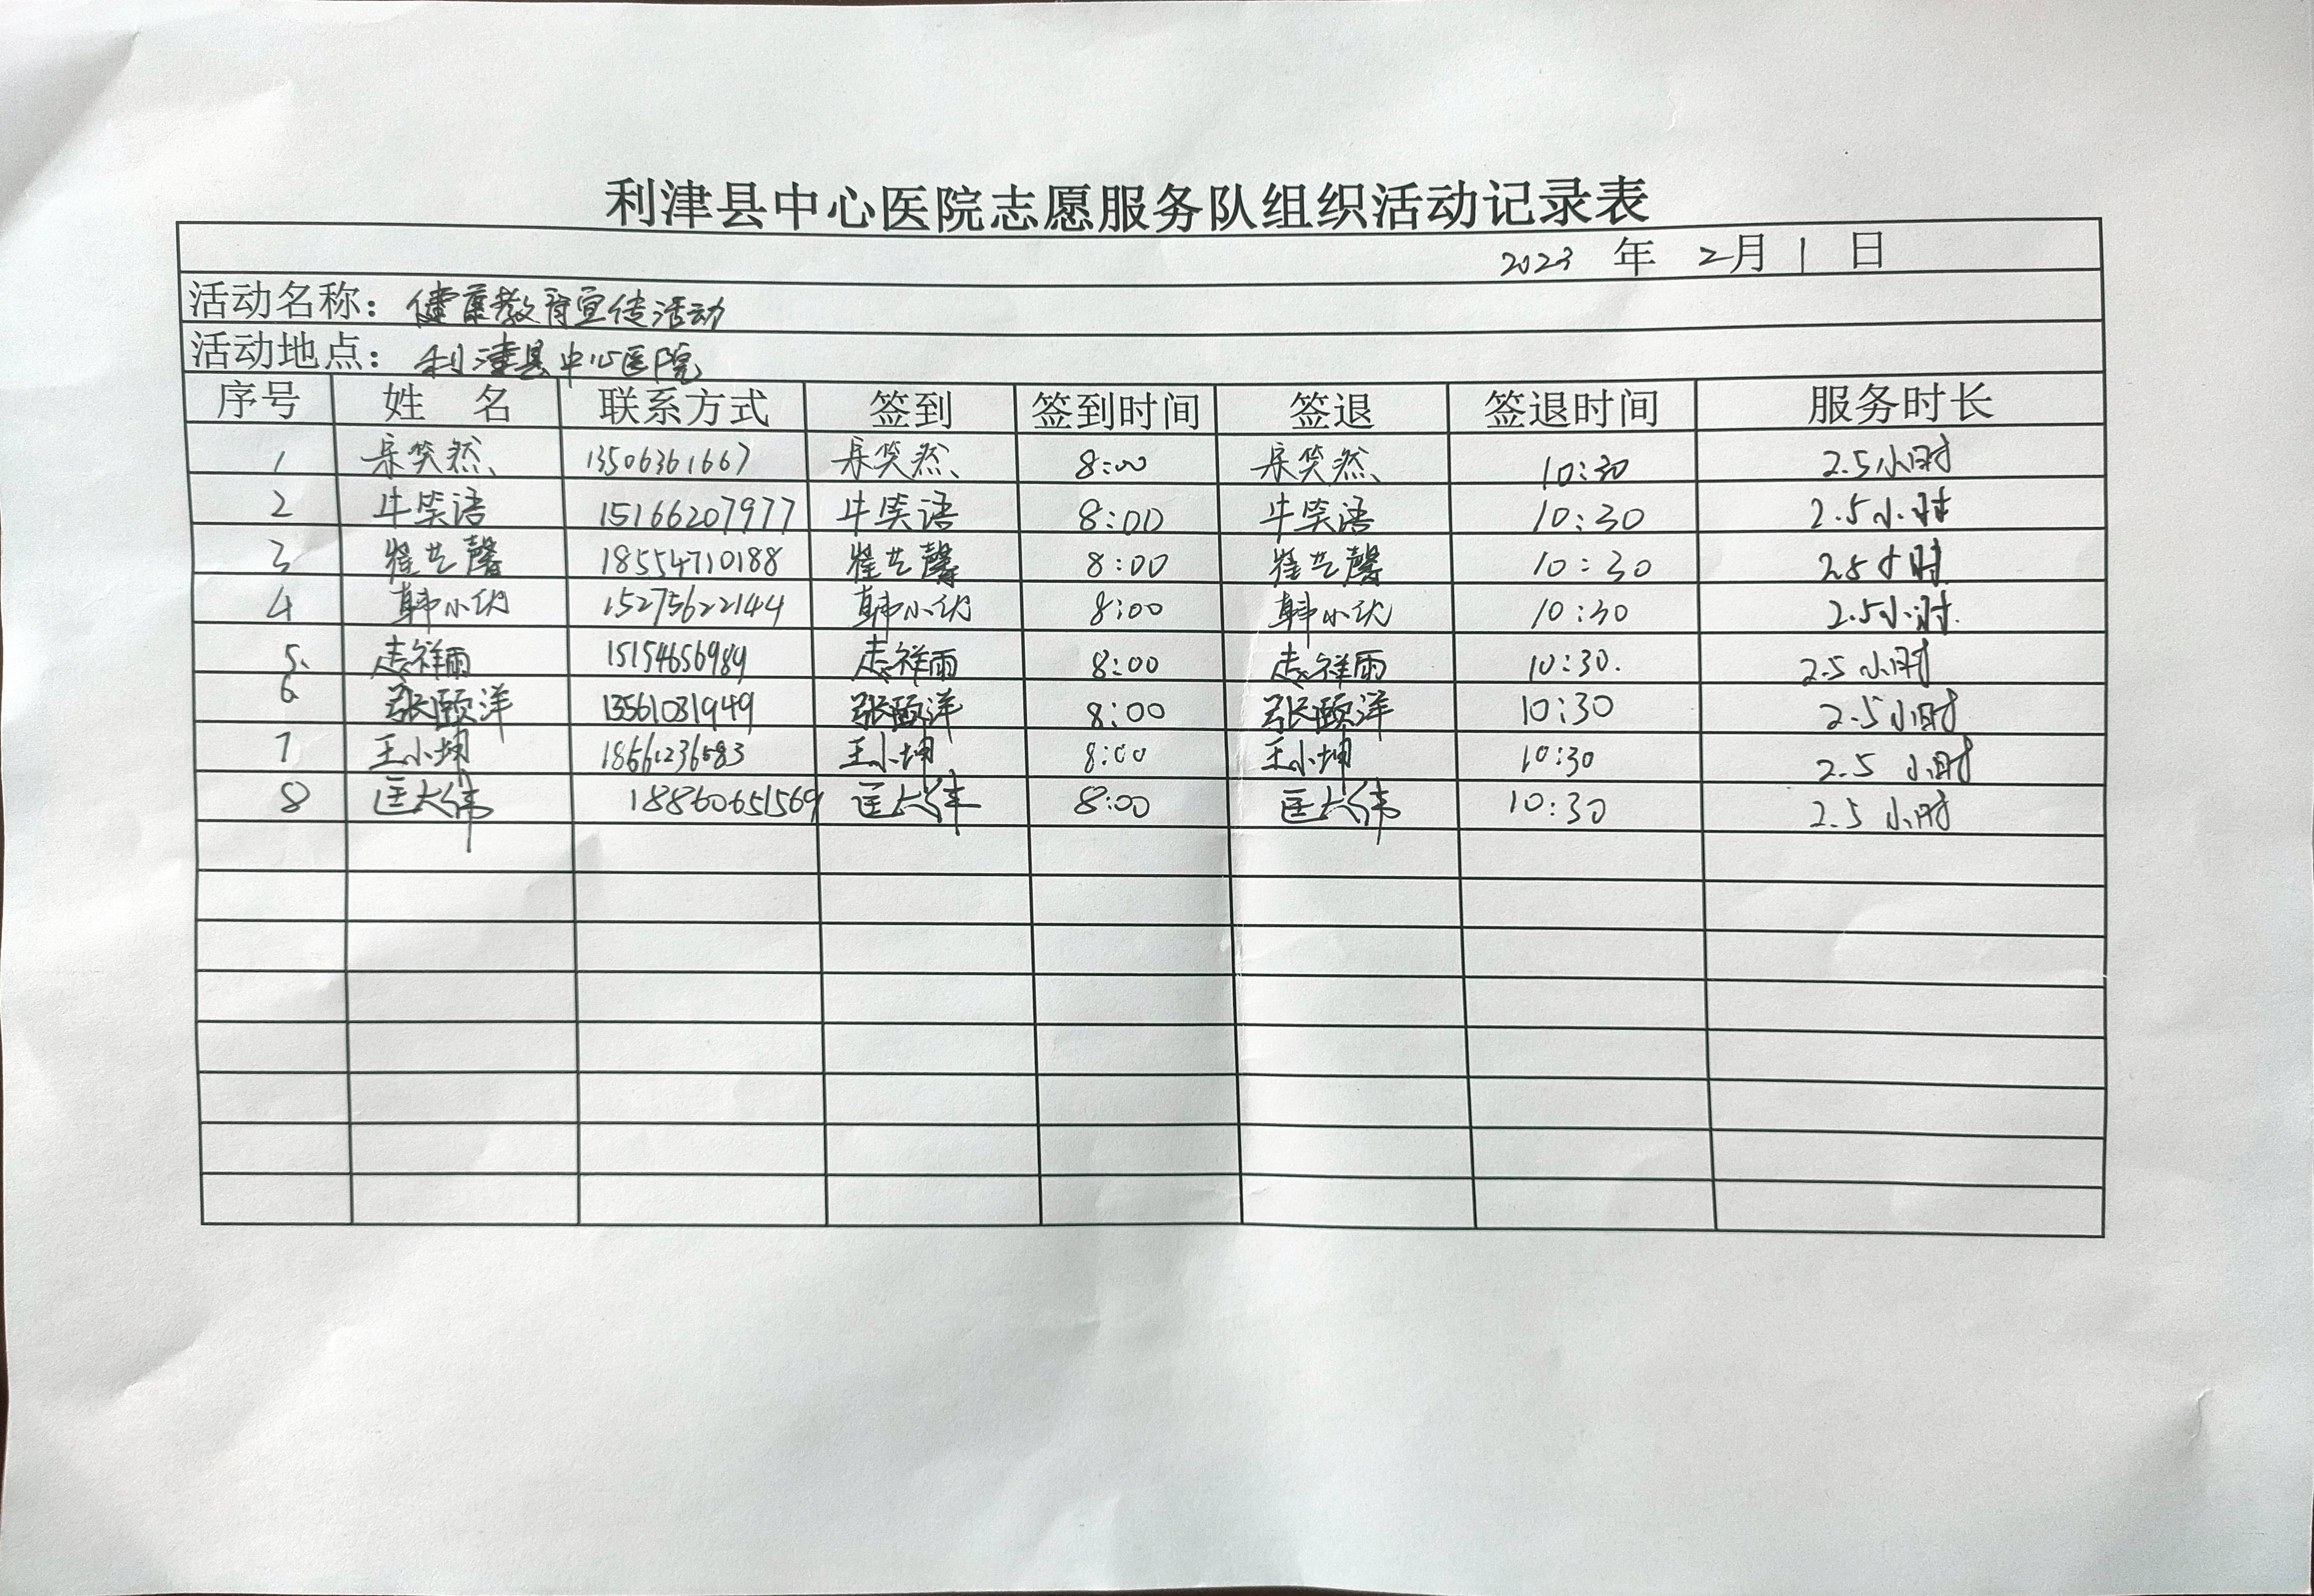 利津县中心医院志愿服务队组织活动记录表
2023 年 2月 1 日
活动名称：健康教育宣传活动
活动地点：利津县中心医院
序号 姓 名 联系方式 签到 签到时间 签退 签退时间 服务时长
1 笑然 13506361667 笑然 8:00 笑然 10:30 2.5小时
2 牛笑语 15166207977 牛笑语 8:00 牛笑语 10:30 2.5小时
3 崔艺馨 18554710188 崔艺馨 8:00 崔艺馨 10:30 2.5小时
4 韩小 15275622144 韩小 8:00 韩小 10:30 2.5小时
5、 祥雨 15154656989 祥雨 8:00 祥雨 10:30. 2.5小时
6 张颐洋 13561031949 张颐洋 8:00 张颐洋 10:30 2.5小时
7 王小坤 8:00 王小坤 10:30 2.5 小时
8 匡大伟 18860651569 匡大伟 8:00 匡大伟 10:30 2.5 小时